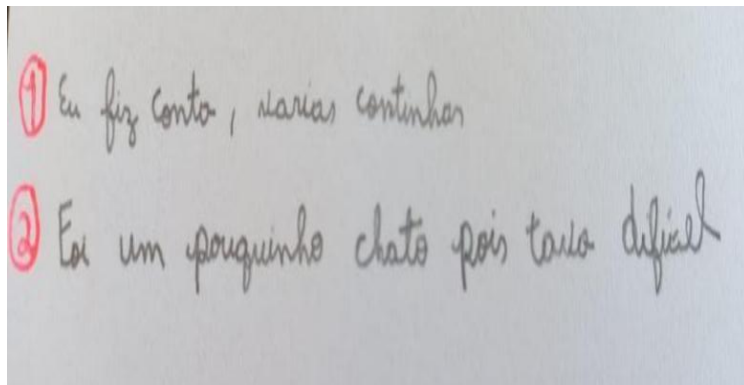 ① Eu fiz conta, varias continhas
② Foi um pouquinho chato pois tava dificel